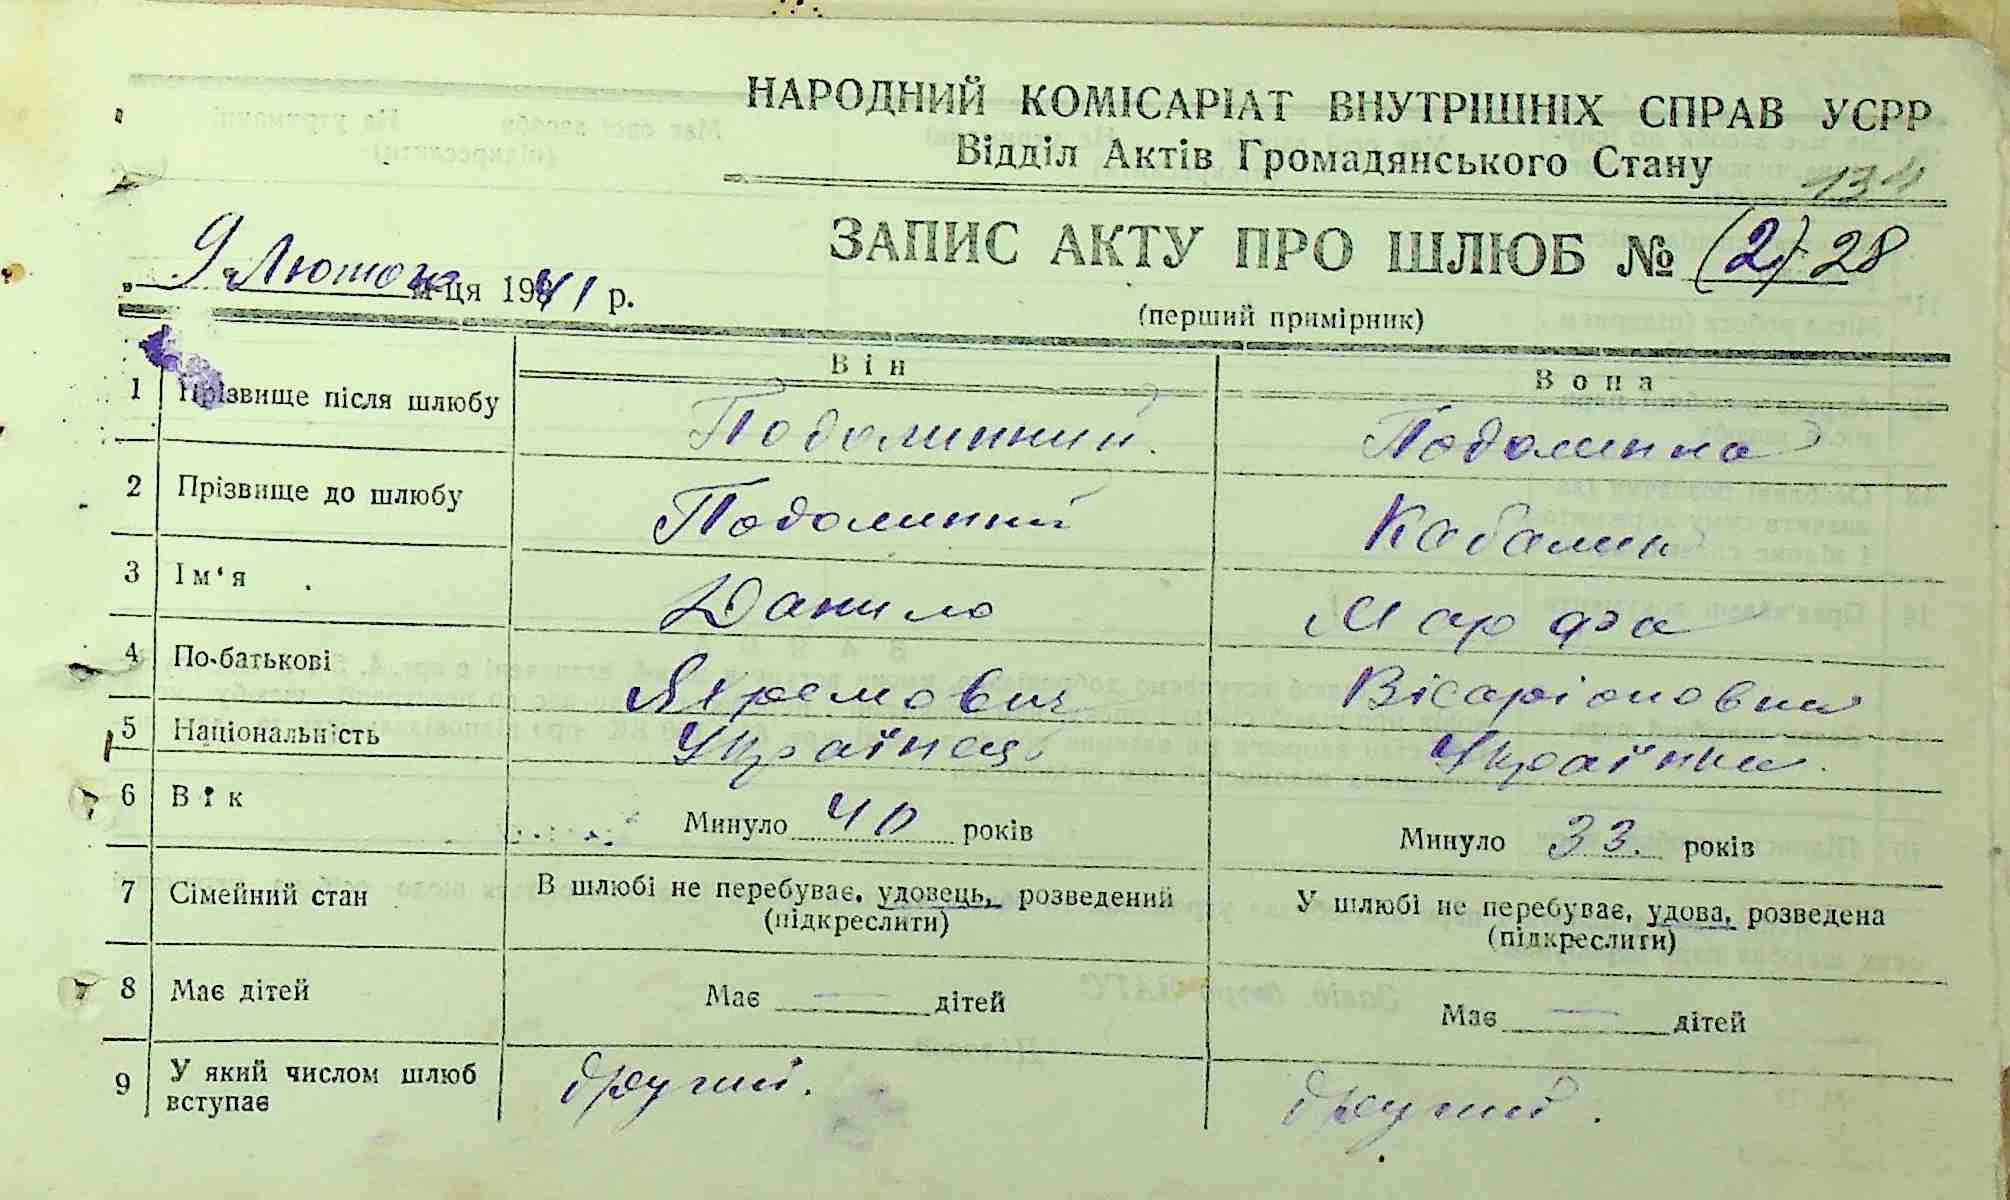 НАРОДНИЙ КОМІСАРІАТ ВНУТРІШНІХ СПРАВ УСРР
Відділ Актів Громадянського Стану
134
ЗАПИС АКТУ ПРО ШЛЮБ № (2) 28
(перший примірник)
„ 9 " Лютого м-ця 1941 р.
Він Вона
1 Прізвище після шлюбу Подолинний. Подолинна
2 Прізвище до шлюбу Подолинний Кабалин
3 Ім'я Данило Марфа
4 По-батькові Яремович Вісаріоновна
5 Національність Українец Українка.
6 Вік Минуло 40 років Минуло 33. років
7 Сімейний стан В шлюбі не перебуває, удовець, розведений (підкреслити) У шлюбі не перебуває, удова, розведена (підкреслити)
8 Має дітей Має — дітей Має — дітей
9 У який числом шлюб вступає другий. другий.